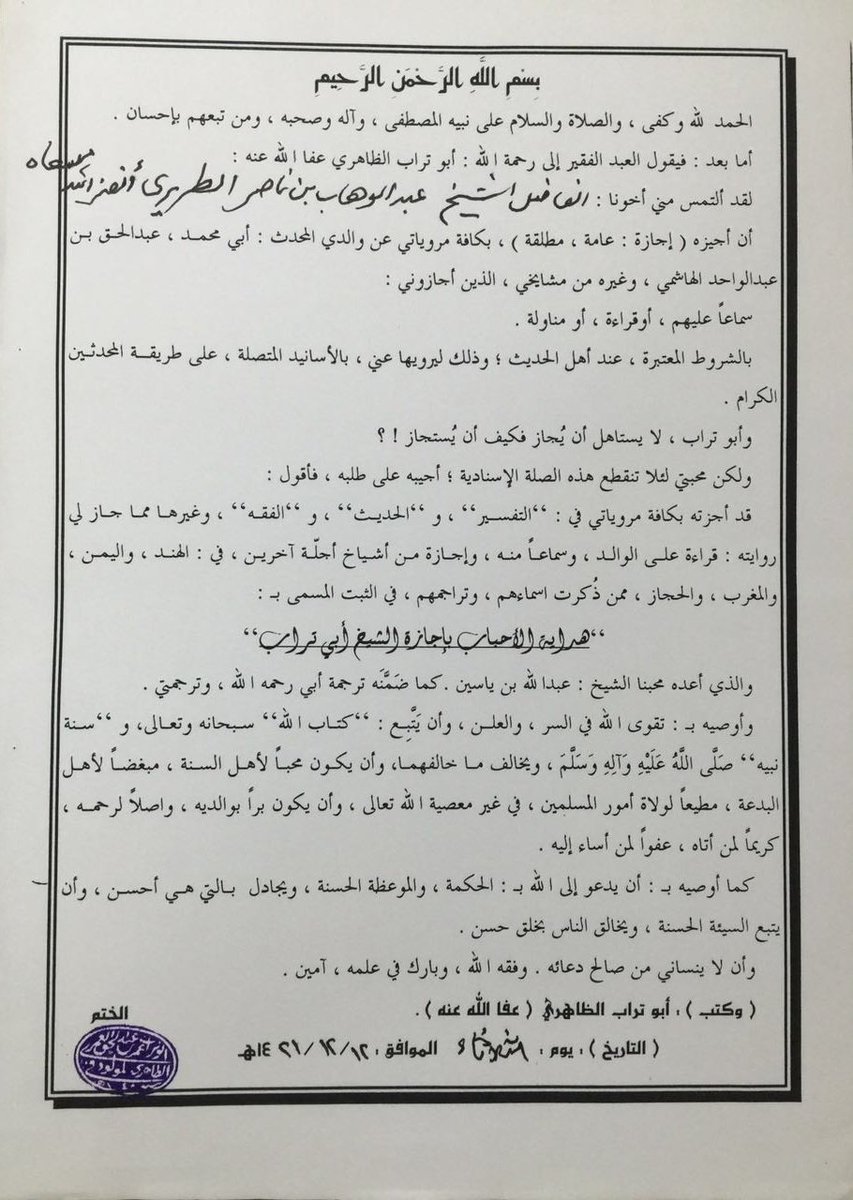 بِسْمِ اللَّهِ الرَّحْمَنِ الرَّحِيمِ
الحمد لله وكفى ، والصلاة والسلام على نبيه المصطفى ، وآله وصحبه ، ومن تبعهم بإحسان .
أما بعد : فيقول العبد الفقير إلى رحمة الله : أبو تراب الظاهري عفا الله عنه :
لقد ألتمس مني أخونا : الفاضل الشيخ عبدالوهاب بن ناصر الطريري
أن أجيزه ( إجازة : عامة ، مطلقة ) ، بكافة مروياتي عن والدي المحدث : أبي محمد ، عبدالحق بن
عبدالواحد الهاشمي ، وغيره من مشايخي ، الذين أجازوني :
سماعاً عليهم ، أوقراءة ، أو مناولة .
بالشروط المعتبرة ، عند أهل الحديث ؛ وذلك ليرويها عني ، بالأسانيد المتصلة ، على طريقة المحدثين
الكرام .
وأبو تراب ، لا يستاهل أن يُجاز فكيف أن يُستجاز ! ؟
ولكن محبتي لئلا تنقطع هذه الصلة الإسنادية ؛ أجيبه على طلبه ، فأقول :
قد أجزته بكافة مروياتي في : “التفسير“ ، و “الحديث“ ، و “الفقه“ ، وغيرها مما جاز لي
روايته : قراءة على الوالد ، وسماعاً منه ، وإجازة من أشياخ أجلّة آخرين ، في : الهند ، واليمن ،
والمغرب ، والحجاز ، ممن ذُكرت اسماءهم ، وتراجمهم ، في الثبت المسمى بـ :
“هداية الأحباب بإجازة الشيخ أبي تراب“
والذي أعده محبنا الشيخ : عبدالله بن ياسين . كما ضَمَّنَه ترجمة أبي رحمه الله ، وترجمتي .
وأوصيه بـ : تقوى الله في السر ، والعلن ، وأن يَتَّبِع : “كتاب الله“ سبحانه وتعالى، و “سنة
نبيه“ صَلَّى اللَّهُ عَلَيْهِ وَآلِهِ وَسَلَّمَ ، ويخالف ما خالفهما، وأن يكون محباً لأهل السنة ، مبغضاً لأهل
البدعة ، مطيعاً لولاة أمور المسلمين ، في غير معصية الله تعالى ، وأن يكون براً بوالديه ، واصلاً لرحمه ،
كريماً لمن أتاه ، عفواً لمن أساء إليه .
كما أوصيه بـ : أن يدعو إلى الله بـ : الحكمة ، والموعظة الحسنة ، ويجادل بالتي هي أحسن ، وأن
يتبع السيئة الحسنة ، ويخالق الناس بخلق حسن .
وأن لا ينساني من صالح دعائه . وفقه الله ، وبارك في علمه ، آمين .
( وكتب ) : أبو تراب الظاهري ( عفا الله عنه ) .
الختم
( التاريخ ) : يوم : الموافق : ١٤٢١/١٢/١٢هـ